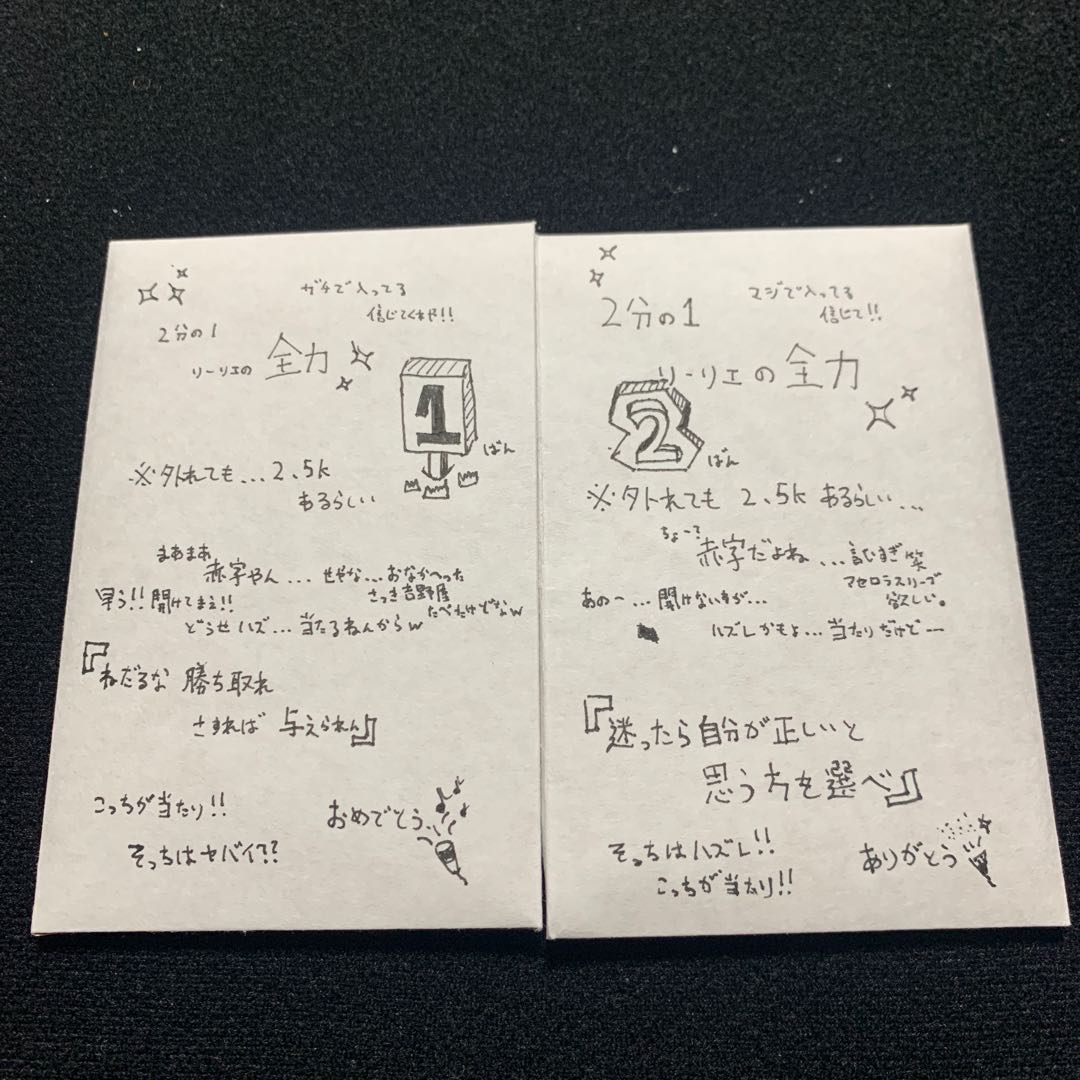 ガチで入ってる
信じてくれや!!
2分の1
リーリエの 全力
1
ばん
※外れても...2.5k
あるらしい
まあまあ
赤字やん...せやな...おなかへった
さっき吉野屋
たべたけどなw
早う!!開けてまえ!!
どうせハズ...当たるねんからw
『ねだるな 勝ち取れ
さすれば 与えられん』
こっちが当たり!!
そっちはヤバイ??
おめでとう
マジで入ってる
信じて!!
2分の1
リーリエの 全力
2
ばん
※外れても 2.5k あるらしい...
ちょー?
赤字だよね...試むすぎ笑
アセロラスリーブ
欲しい。
あのー...開けないすが...
ハズレかもよ...当たりだけどー
『迷ったら自分が正しいと
思う方を選べ』
そっちはハズレ!!
こっちが当たり!!
ありがとう